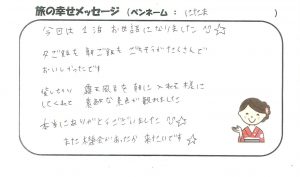 旅の幸せメッセージ (ペンネーム : にたま )
今回は1泊お世話になりました
夕ご飯も朝ご飯もごちそうがたくさんで
おいしかったです
貸しきり 露天風呂を朝に入れる様に
してくれて 素敵な景色が観れました
本当にありがとうございました
また機会があったら来たいです